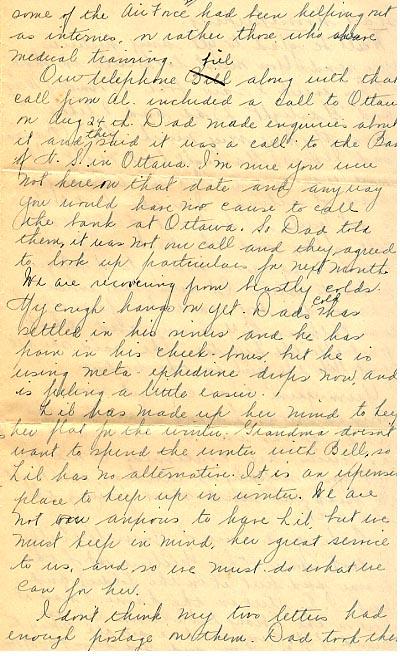 some of the Air Force had been helping out
as internes, or rather those who have
medical training.
Our telephone bill along with that
call from Al. included a call to Ottawa
on Aug 24th. Dad made enquiries about
it and they said it was a call to the Ban
of N. S. in Ottawa. I'm sure you were
not here on that date and anyway
you would have no cause to call
the bank at Ottawa. So Dad told
them, it was not our call and they agreed
to look up particulars for next month.
We are recovering from beastly colds.
My cough hangs on yet. Dads cold has
settled in his sinus and he has
pain in his cheek-bones, but he is
using meta-ephedrine drops now, and
is feeling a little easier.
Lil has made up her mind to keep
her flat for the winter. Grandma doesn't
want to spend the winter with Bell, so
Lil has no alternative. It is an expensive
place to keep up in winter. We are
not anxious to have Lil, but we
must keep in mind, her great service
to us, and so we must do what we
can for her.
I don't think my two letters had
enough postage on them. Dad took them